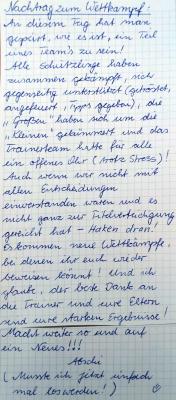 Nachtrag zum Wettkampf:
An diesem Tag hat man
gespürt, wie es ist, ein Teil
eines Team's zu sein!
Alle Schützlinge haben
zusammen gekämpft, sich
gegenseitig unterstützt (getröstet,
angefeuert, Tipps gegeben), die
"Großen" haben sich um die
"Kleinen" gekümmert und das
Trainerteam hatte für alle
ein offenes Ohr (trotz Stress)!
Auch wenn wir nicht mit
allen Entscheidungen
einverstanden waren und es
nicht ganz zur Titelverteidigung
gereicht hat - Haken dran!
Es kommen neue Wettkämpfe,
bei denen ihr euch wieder
beweisen könnt! Und ich
glaube, der beste Dank an
die Trainer und eure Eltern
sind eure starken Ergebnisse!
Macht weiter so und auf
ein Neues!!!
(Musste ich jetzt einfach
mal loswerden!)